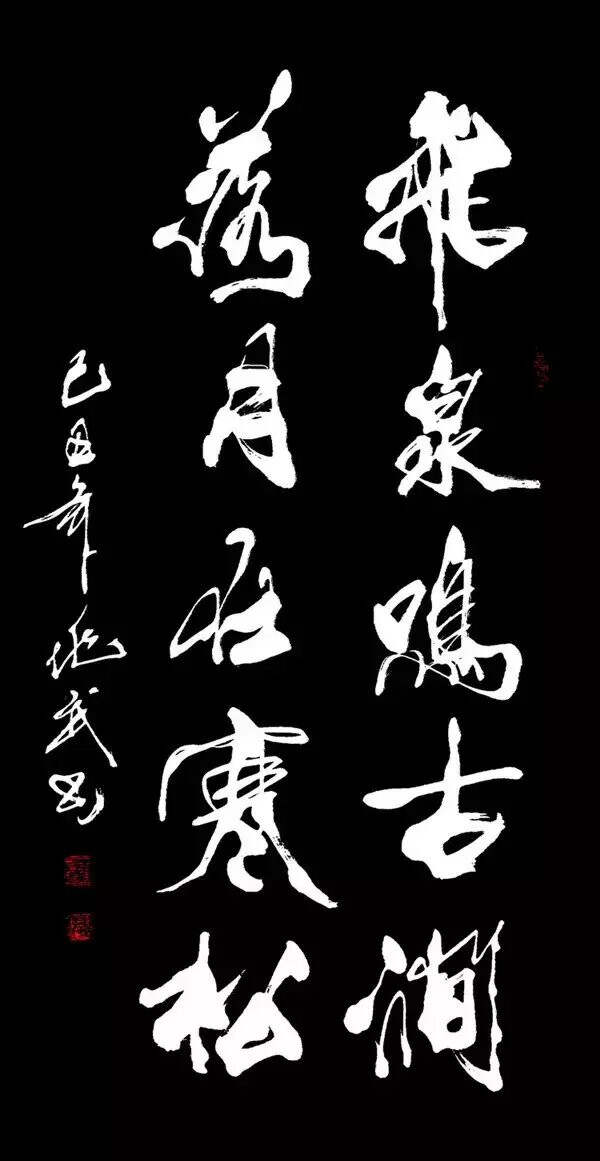 飛泉鳴古澗
落月在寒松
己丑年 武书